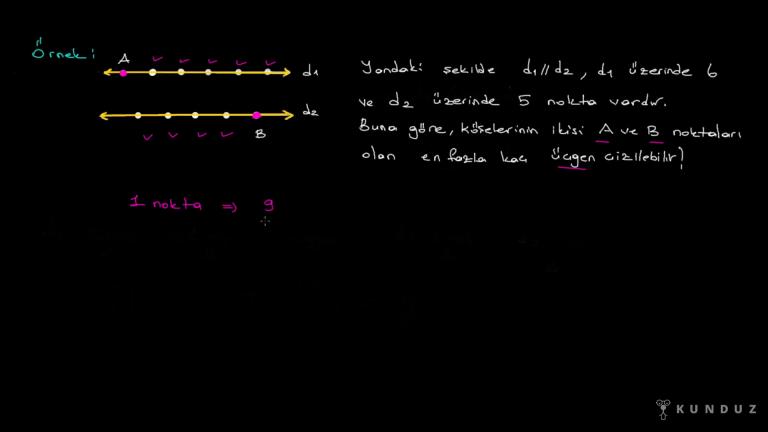 Örnek:
A
d1
d2
B
Yandaki şekilde d1 // d2, d1 üzerinde 6
ve d2 üzerinde 5 nokta vardır.
Buna göre, köşelerinin ikisi A ve B noktaları
olan en fazla kaç üçgen çizilebilir?
1 nokta => 9
KUNDUZ